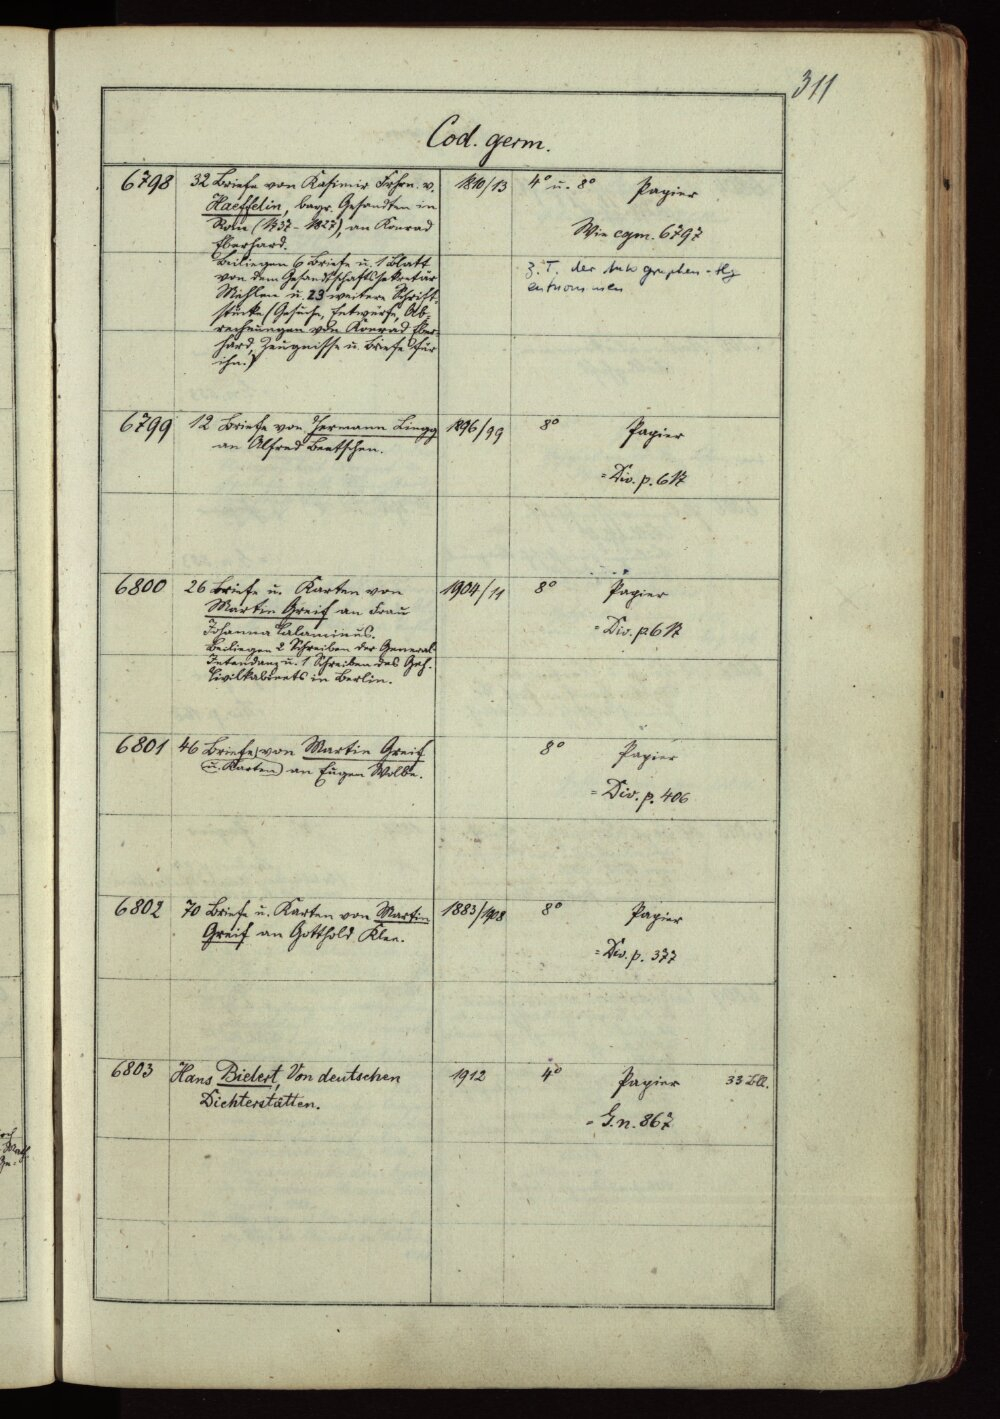 311
Cod. germ.
6798 32 Briefe von Kasimir Frhrn. v. 1810/13 4° u. 8° Papier
Haeffelin, bayr. Gesandten in
Rom (1737-1827), an Konrad Wie cgm. 6797
Eberhard.
Beiliegen 6 Briefe u. 1 Blatt z. T. der Autographen-Slg
von dem Gesandtschaftssekretär entnommen
Mehlem u. 23 weitere Schrift-
stücke (Gesuche, Entwürfe, Ab-
rechnungen von Konrad Eber-
hard, Zeugnisse u. Briefe für
ihn.)
6799 12 Briefe von Hermann Lingg 1896/99 8° Papier
an Alfred Beetschen.
= Div. p. 617
6800 26 Briefe u. Karten von 1904/11 8° Papier
Martin Greif an Frau
Johanna Calaminus. = Div. p 617
Beiliegen 2 Schreiben der General-
Intendanz u. 1 Schreiben des Geh.
Civilkabinets in Berlin.
6801 46 Briefe von Martin Greif 8° Papier
(u. Karten) an Eugen Wolbe.
= Div. p. 406
6802 70 Briefe u. Karten von Martin 1883/1908 8° Papier
Greif an Gotthold Klee.
= Div. p. 377
6803 Hans Bielert, Von deutschen 1912 4° Papier 33 Bll.
Dichterstätten.
= G.n. 867